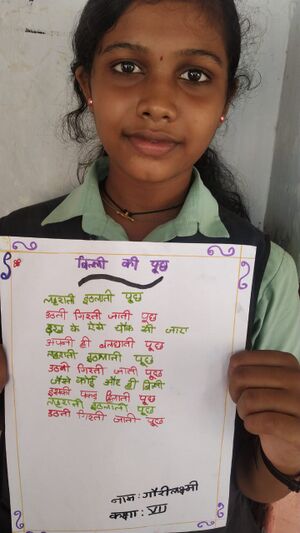 बिल्ली की पूछ
लहराती इठलाती पूछ
उठती गिरती जाती पूछ
के ऐसे चौंक सी जारा
अपनी ही बलखाती पूछ
लहराती इठलाती पूछ
उठती गिरती जाती पूछ
जैसे कोई और ही बिल्ली
इसकी पकड़ हिलाती पूछ
लहराती इठलाती पूछ
उठती गिरती जाती पूछ
नाम: गौरीलक्ष्मी
कक्षा: VII